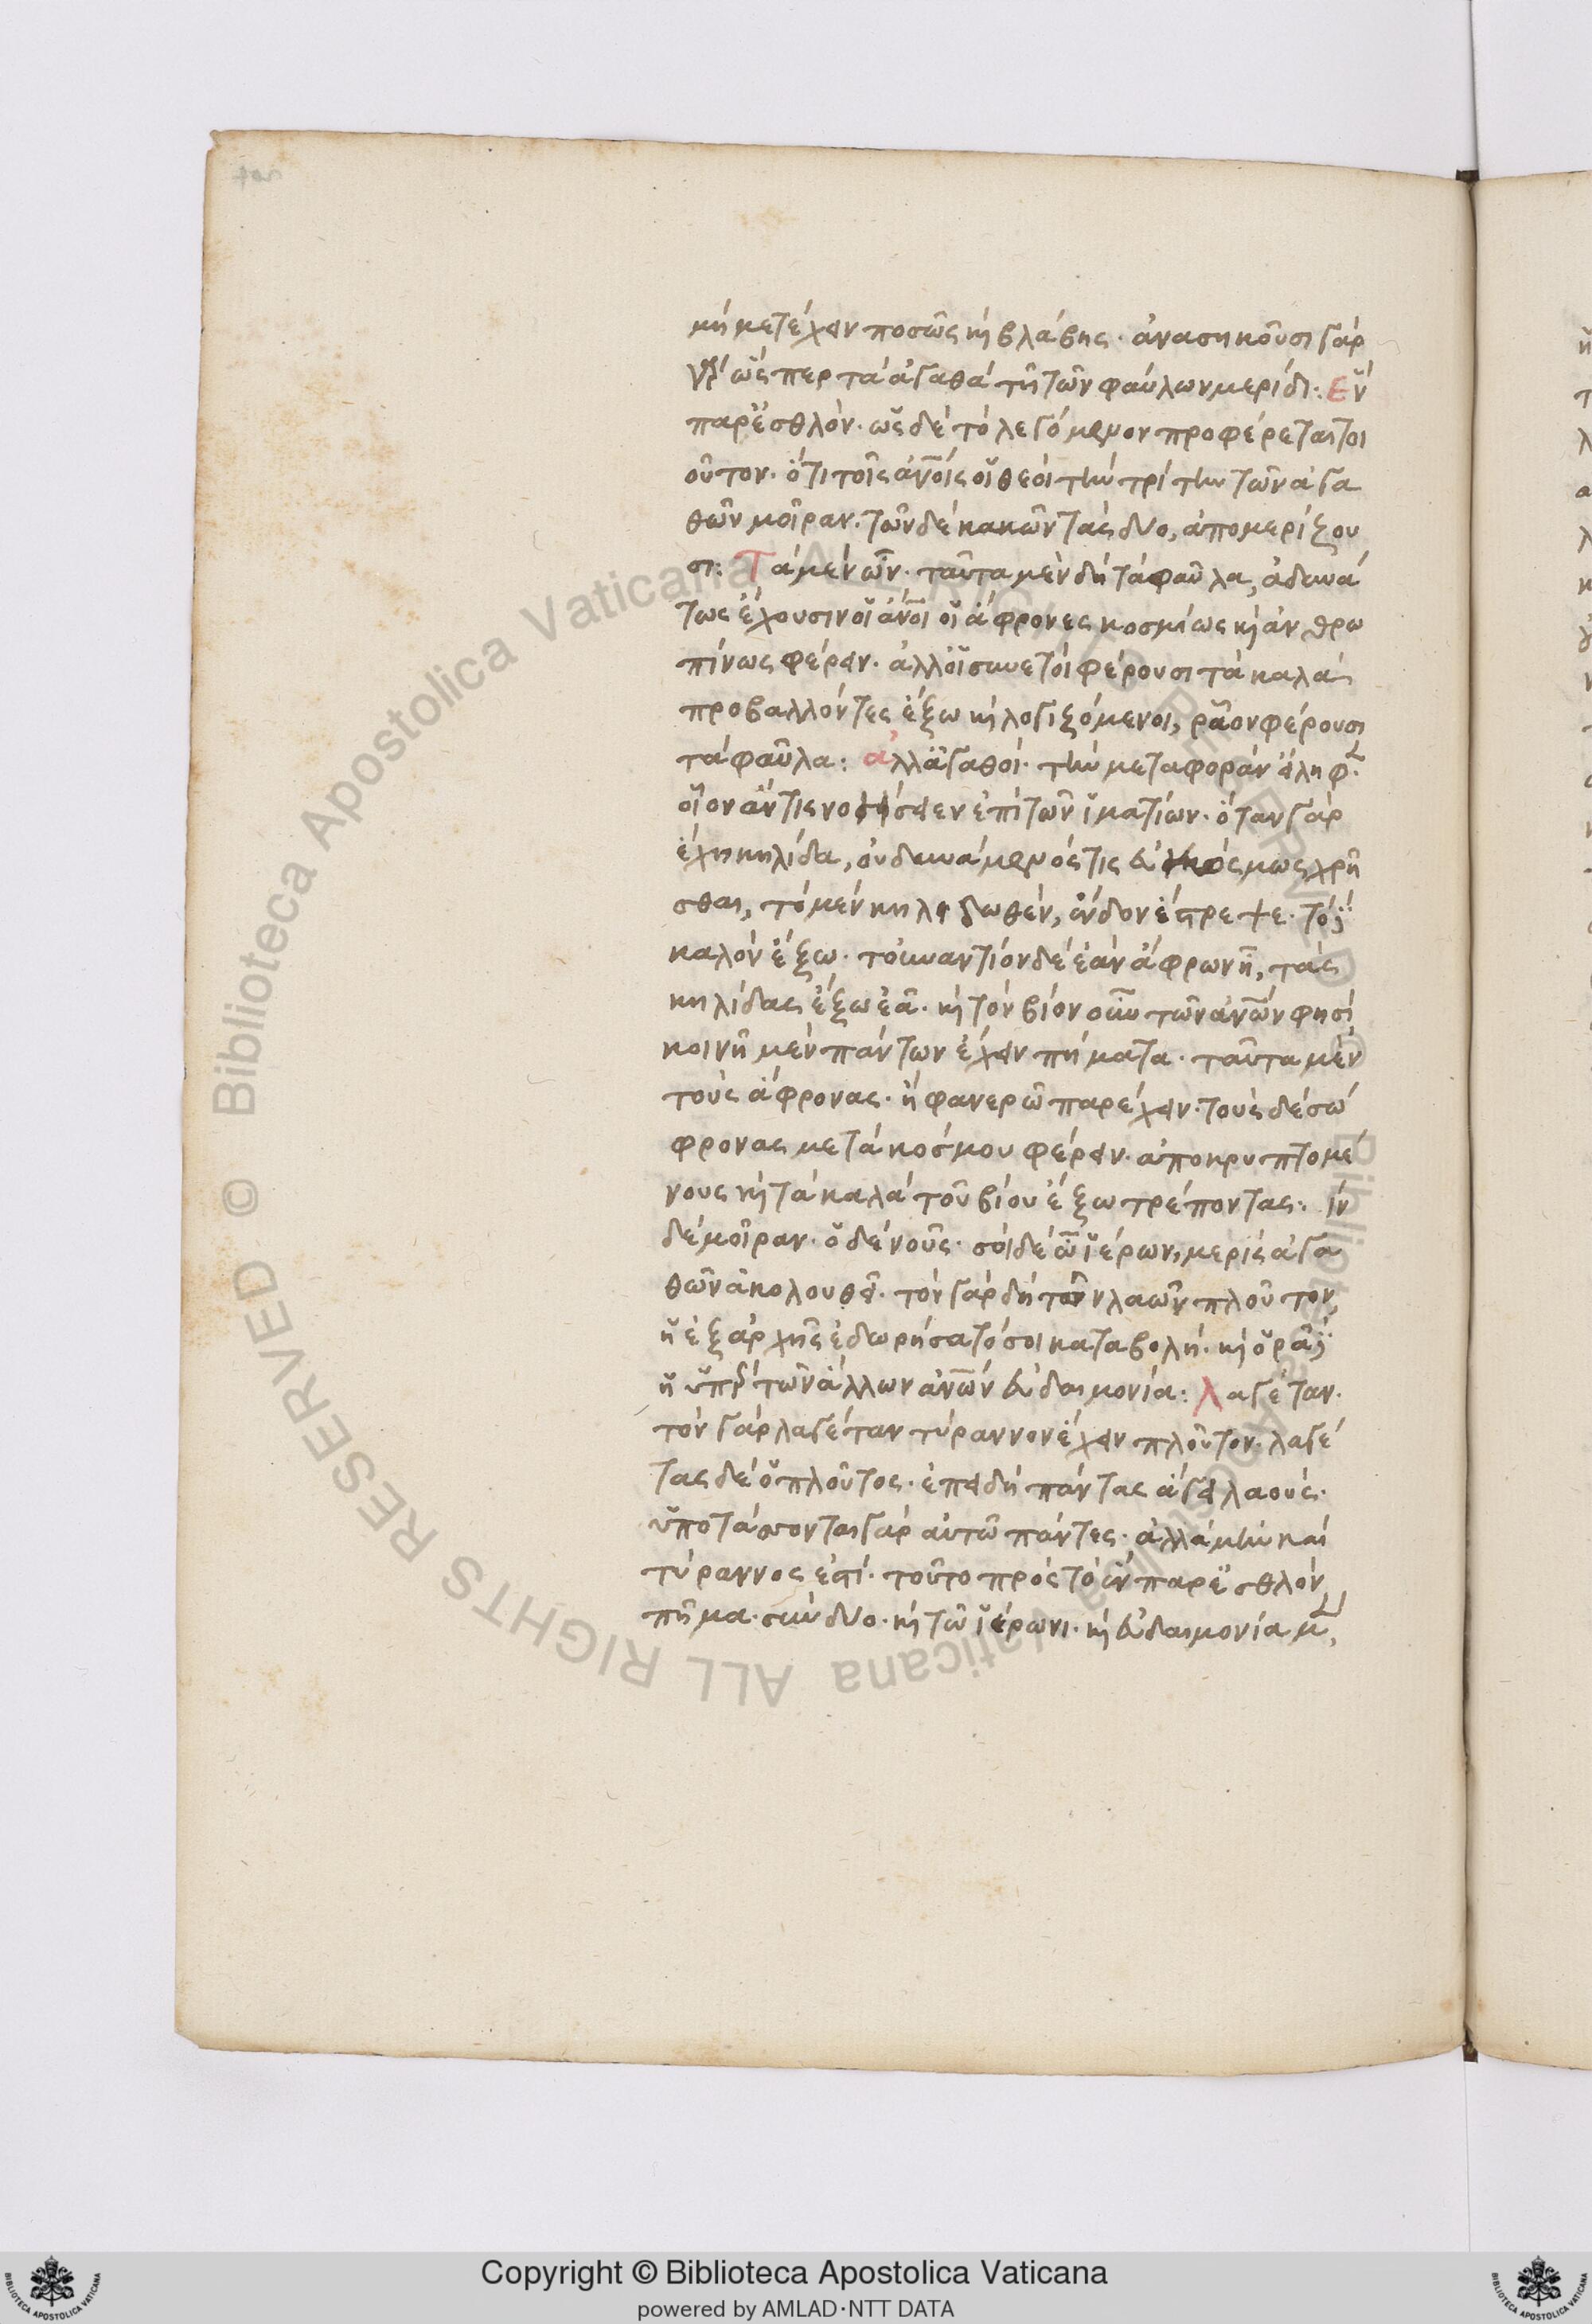 μὴ μετέχειν ποσῶς κὶ βλάβης· ἀνασηκοῦσι γὰρ
ὥσπερ τὰ ἀγαθὰ τῆ τῶν φαύλων μερίδι: Ἓν
παρ' ἐσθλόν· ὧδε τὸ λεγόμενον προφέρεται τοι
οῦτον· ὅτι τοῖς ἀνοῖς οἱ θεοὶ τὴν τρίτην τῶν ἀγα
θῶν μοῖραν· τῶν δὲ κακῶν τὰς δύο, ἀπομερίζου
σι: Τὰ μὲν ὦν· ταῦτα μὲν δὴ τὰ φαῦλα, ἀδυνά
τως ἔχουσιν οἱ ἄνοι οἱ ἄφρονες κοσμίως κὶ ἀνθρω
πίνως φέρειν· ἀλλ' οἱ συνετοὶ φέρουσι τὰ καλὰ
προβαλλόντες ἔξω κὶ λογιζόμενοι, ρᾶον φέρουσι
τὰ φαῦλα: ἀλλ' ἀγαθοί· τὴν μεταφορὰν εἴληφ·
οἷον ἄν τις νοήσειεν ἐπὶ τῶν ἱματίων· ὅταν γὰρ
ἔχη κηλίδα, ὁ δυνάμενός τις εὐκόσμως χρῆ
σθαι, τὸ μὲν κηλιδωθὲν, ἔνδον ἔστρεψε· τὸ δὲ
καλὸν ἔξω· τοὐναντίον δὲ ἐὰν ἄφρων ῆ, τὰς
κηλίδας ἔξω ἐᾶ· κὶ τὸν βίον οὖν τῶν ἀνων φησὶ
κοινῆ μὲν πάντων ἔχειν πήματα· ταῦτα μὲν
τοὺς ἄφρονας· ἢ φανερῶ παρέχειν· τοὺς δὲ σώ
φρονας μετὰ κόσμου φέρειν· ἀποκρυπτομέ
νους κὶ τὰ καλὰ τοῦ βίου ἔξω τρέποντας: ὶν
δὲ μοῖραν· ὁ δὲ νοῦς· σοὶ δὲ ὦ ἱέρων, μερὶς ἀγα
θῶν ἀκολουθεῖ· τὸν γὰρ δὴ τῶν λαῶν πλοῦτον,
ἡ ἐξ ἀρχῆς ἐδωρήσατό σοι καταβολή· κὶ ὁρᾶ δὲ
ἡ ὑπὲρ τῶν ἄλλων ἀνων εὐδαιμονία: λαγέταν·
τὸν γὰρ λαγέταν τύραννον ἔχειν πλοῦτον· λαγέ
τας δὲ ὁ πλοῦτος· ἐπειδὴ πάντας ἄγει λαούς·
ὑποτάσσονται γὰρ αὐτῶ πάντες· ἀλλὰ μὴν καὶ
τύραννος ἐστί· τοῦτο πρὸς τὸ ἓν παρ' ἐσθλὸν
πῆμα· σὺν δύο· κὶ τῶ ἱέρωνι· κὶ εὐδαιμονία μ,